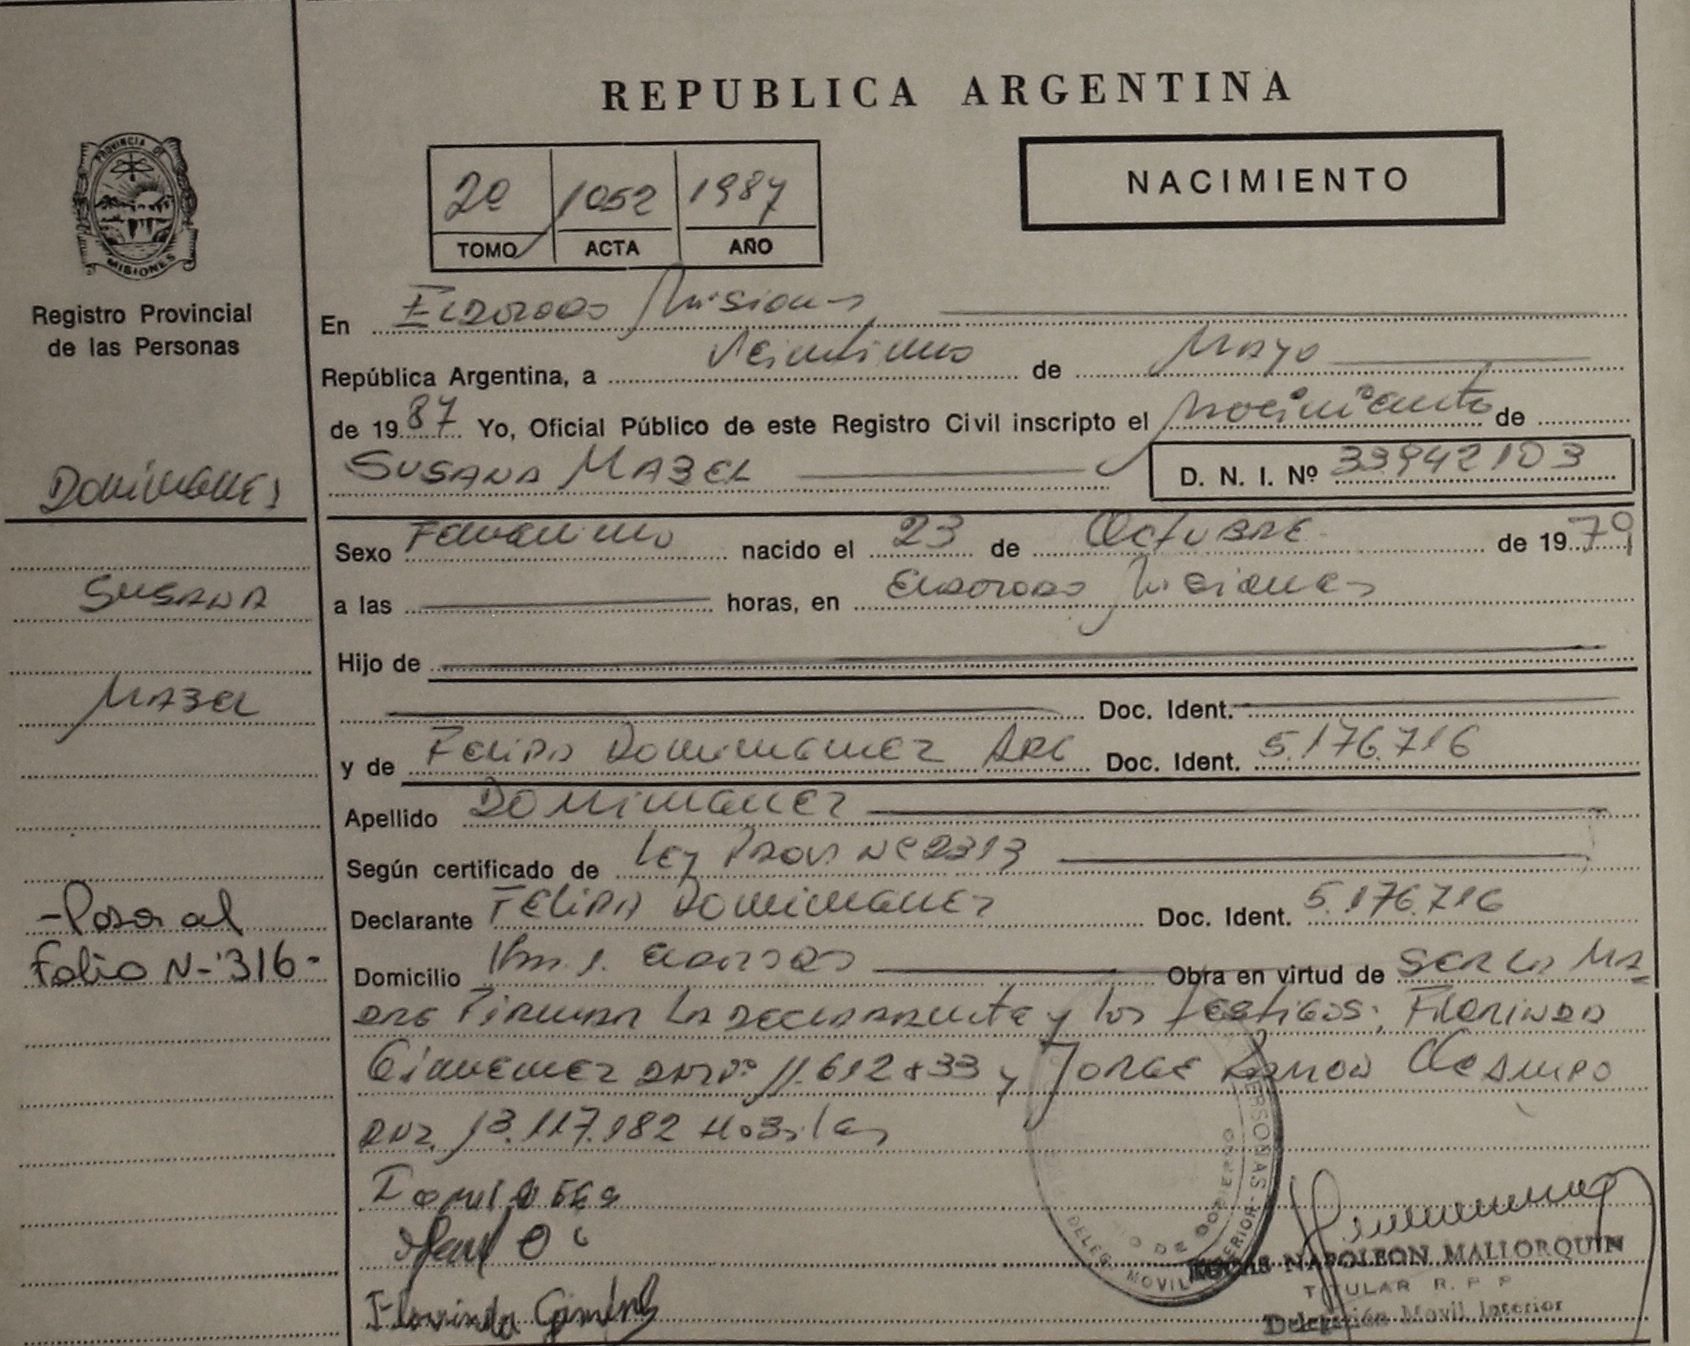 REPUBLICA ARGENTINA
PROVINCIA DE
MISIONES
Registro Provincial
de las Personas
2º 1052 1987
TOMO ACTA AÑO
NACIMIENTO
En Eldorado Misiones
República Argentina, a Veintiuno de Mayo
de 1987 Yo, Oficial Público de este Registro Civil inscripto el Nacimiento de
SUSANA MABEL D. N. I. Nº 33942103
Sexo Femenino nacido el 23 de Octubre de 1979
a las horas, en Eldorado Misiones
Hijo de
Doc. Ident.
y de Felipa Dominguez ARG Doc. Ident. 5.176.716
Apellido Dominguez
Según certificado de Ley Prov. Nº 2313
Declarante Felipa Dominguez Doc. Ident. 5.176.716
Domicilio Km. Eldorado Obra en virtud de SER LA MA
DRE Firman La declarante y los testigos: Florinda
Gimenez DNI Nº 11.612.833 y Jorge Ramon Ocampo
DNI 13.117.182 Habiles
Florinda Gimenez
Dominguez
SUSANA
MABEL
-Pasa al
Folio N-316-
PERSONAS
DELEG. MOVIL INTERIOR
NAPOLEON MALLORQUIN
TITULAR R. P. P
Delegación Movil Interior